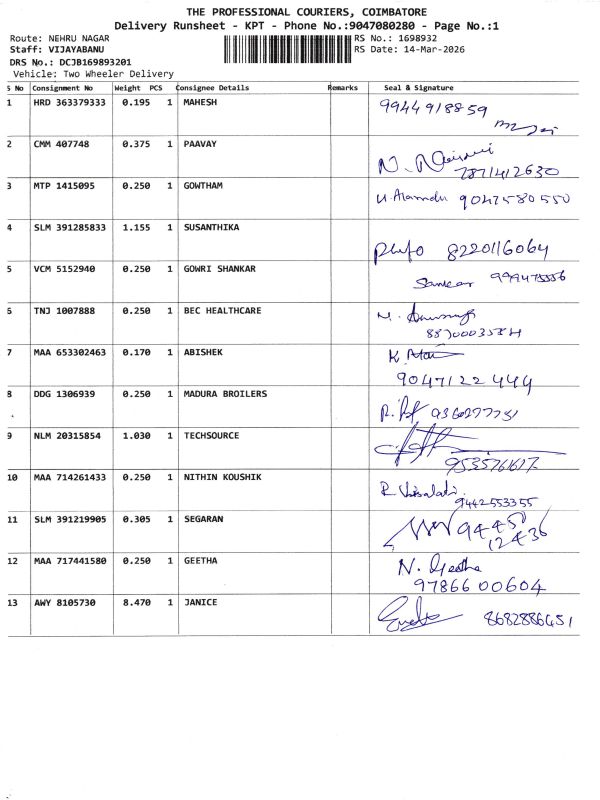 THE PROFESSIONAL COURIERS, COIMBATORE
Delivery Runsheet - KPT - Phone No.:9047080280 - Page No.:1
Route: NEHRU NAGAR
RS No.: 1698932
Staff: VIJAYABANU
RS Date: 14-Mar-2026
DRS No.: DCJB169893201
Vehicle: Two Wheeler Delivery
S No Consignment No Weight PCS Consignee Details Remarks Seal & Signature
1 HRD 363379333 0.195 1 MAHESH 9944918859
2 CMM 407748 0.375 1 PAAVAY
7871412630
3 MTP 1415095 0.250 1 GOWTHAM 9047580550
4 SLM 391285833 1.155 1 SUSANTHIKA
8220116064
5 VCM 5152940 0.250 1 GOWRI SHANKAR
Sankar
6 TNJ 1007888 0.250 1 BEC HEALTHCARE
7 MAA 653302463 0.170 1 ABISHEK
9047122444
8 DDG 1306939 0.250 1 MADURA BROILERS
9 NLM 20315854 1.030 1 TECHSOURCE
10 MAA 714261433 0.250 1 NITHIN KOUSHIK
R. Visalati
9442553355
11 SLM 391219905 0.305 1 SEGARAN
94450
12436
12 MAA 717441580 0.250 1 GEETHA N. Geetha
9786600604
13 AWY 8105730 8.470 1 JANICE 8682886451